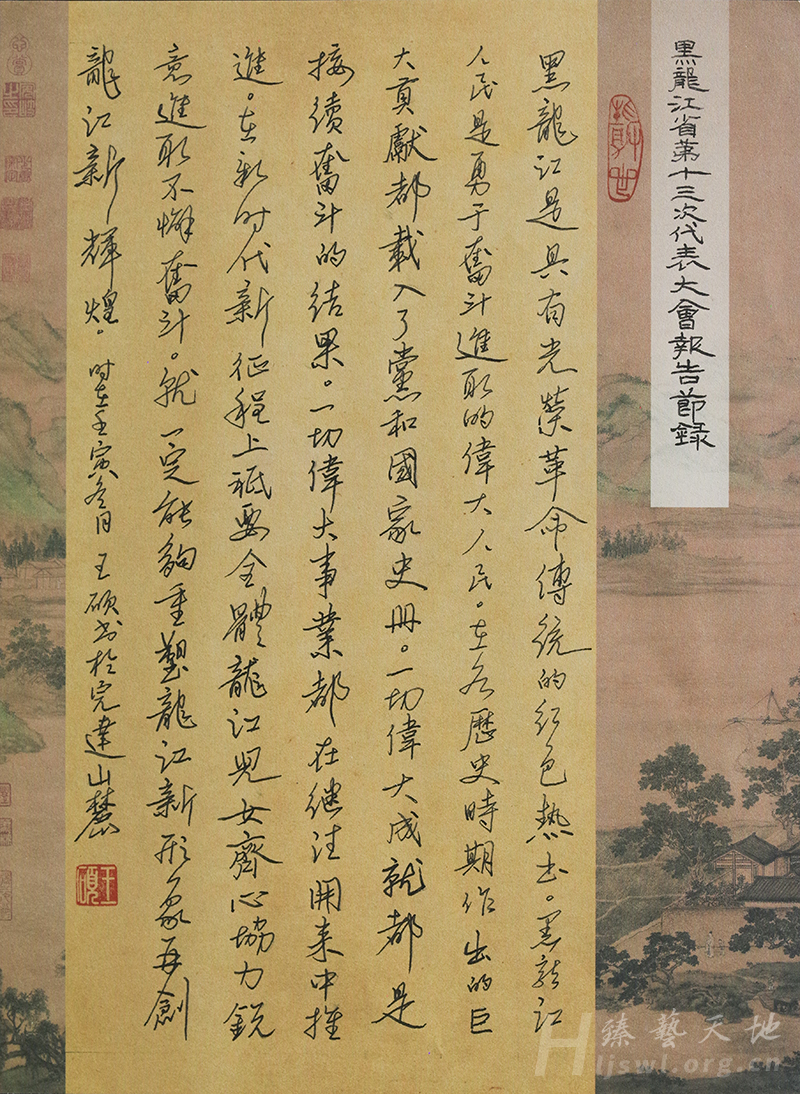 黑龍江省第十三次代表大會報告節錄
黑龍江是具有光榮革命傳統的紅色熱土。黑龍江
人民是勇于奮斗進取的偉大人民。在各歷史時期作出的巨
大貢獻都載入了黨和國家史冊。一切偉大成就都是
接續奮斗的結果。一切偉大事業都在繼往開来中推
進。在新时代新征程上祇要全體龍江兒女齊心協力銳
意進取不懈奮斗。就一定能夠重塑龍江新形象再創
龍江新輝煌。时在壬寅冬月王碩书於完達山麓
王碩
臻藝天地
Hljswl.org.cn